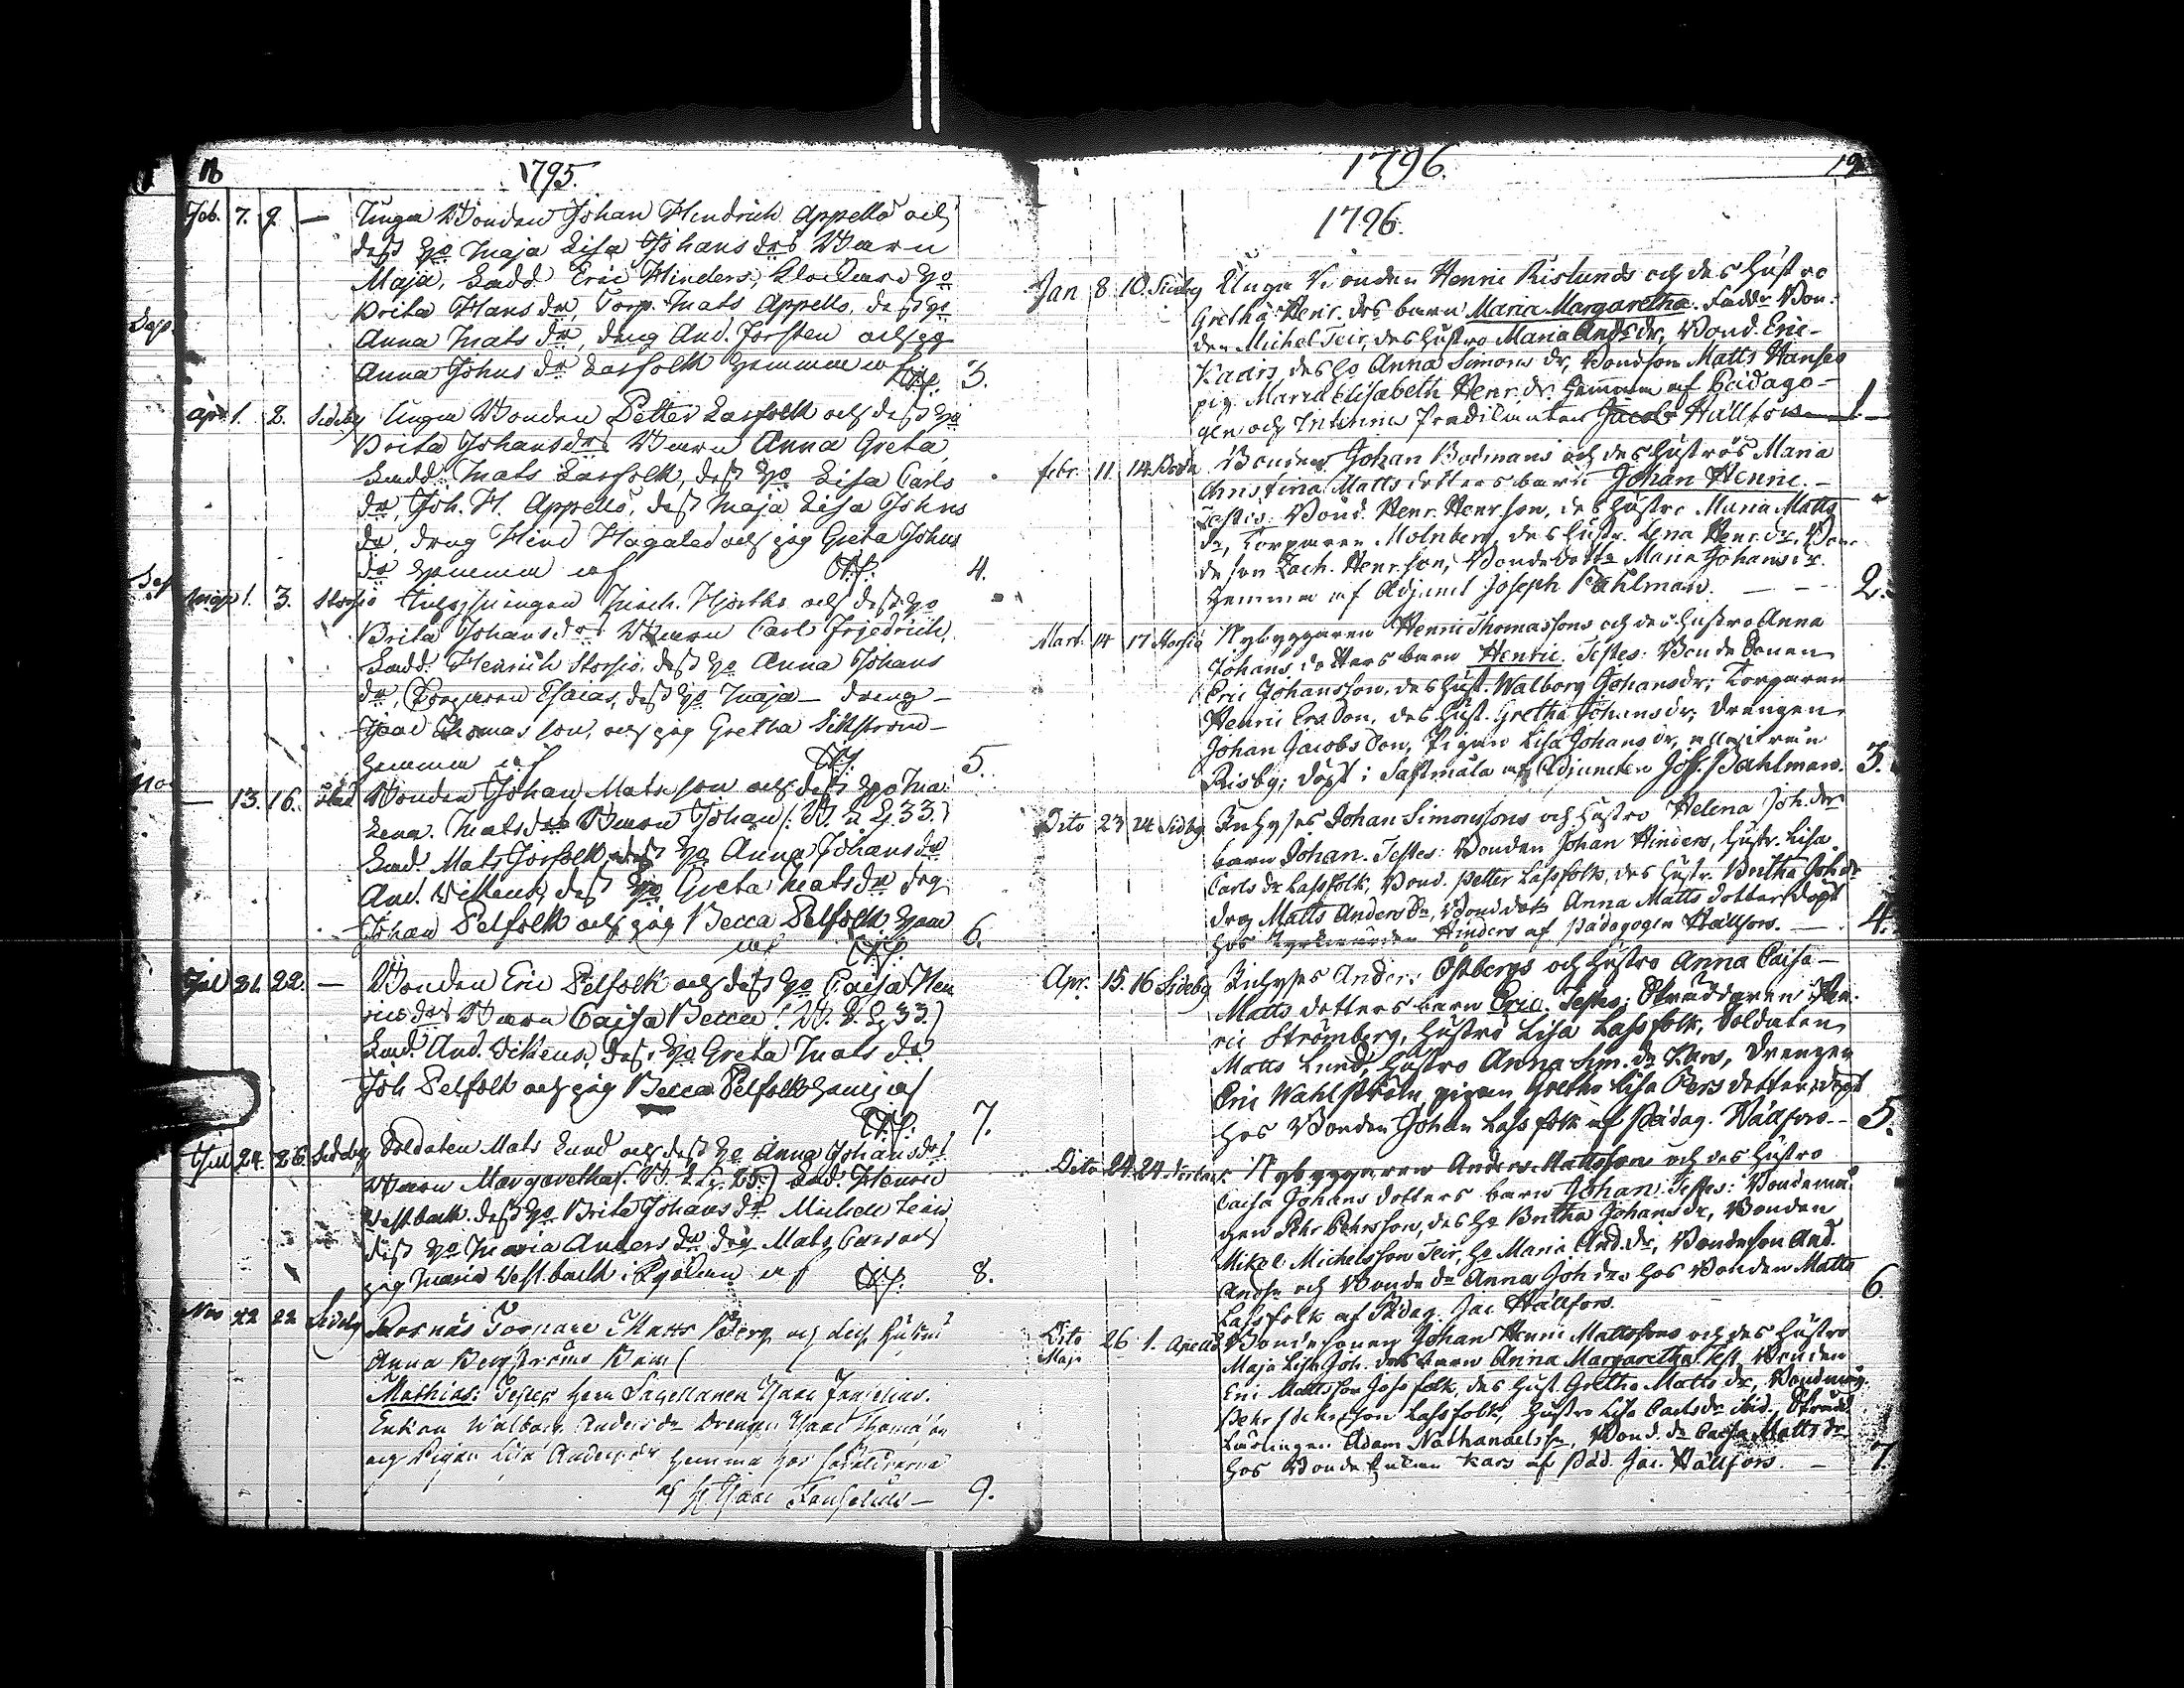 18
1795.
Feb. 7. 9. — Unga Bonden Johan Hindrich Appellö och
dess Ho Maja Lisa Johans drs Barn
Maja, Fadd Eric Hinders, Ho
Brita Hans dr, Torp. Mats Appello, dess Ho
Anna Mats dr, dreng And. Forsten och pig
Anna Johns dr Lasfolk hemma af 3.
Apr. 1. 2. Sideby Unga Bonden Petter Lasfolk och dess Ho
Brita Johans drs Barn Anna Greta,
Fadd. Mats Lasfolk, dess Ho Lisa Carls
dr, Joh. H. Appellö, dess Maja Lisa Johns
dr, dreng Hind Hagaled och pig Greta Johns
dr hemma af 4.
Maji 1. 3. Storsiö Inhysingen Mich. Hjorths och dess Ho
Brita Johans drs Barn Carl Friedrich,
Fadd. Henrich Storsiö, dess Ho Anna Johans
dr, Torparen Esaias, dess Ho Maja — dreng —
Isaac Thomas son, och pig Gretha Sikström —
hemma af 5.
— 13. 16. Bonden Johan Mats son och dess Ho Ma
Lena Mats drs Barn Johan (: B. L. 33.)
Fad. Mats Josfolk, dess Ho Anna Johans dr
And. Vikens, dess Ho Greta Mats dr drg
Johan Pelfolk och pig Becca Pelfolk hem
af 6.
Jul 21. 22. — Bonden Eric Pelfolk och dess Ho Caisa Hen
rics drs Barn Caisa Becca (: B. L. 33.)
Fad. And. Vikens, dess Ho Greta Mats dr
Joh Pelfolk och pig Becca Pelfolk hema af
7.
Jul 24. 26. Sideby Soldaten Mats Lund och dess Ho Anna Johans drs
Barn Margaretha (: B. L. 25.) Fad. Henric
Westback. dess Ho Brita Johans dr Michell Teir
dess Ho Maria Anders dr drg Mats Cars och
pig Maria Westback i Kyrkan af 8.
Nov 22 22 Sideby Rosnäs Mats Berg och dess hustru
Anna Bergströms Barn (
Mathias. Testes herr Sacellanen Isaac
Enkan Walborg Anders dr Drengen Isaac Thomasson
och Pigan Lisa Anders dr hemma hos
af H Isaac 9.
1796. 19
1796.
Jan 8 10 Sideby Unga Bonden Henric Rislunds och des hustro
Gretha Henr. des barn Maria Margaretha. Faddr Bon-
den Michel Teir, des hustro Maria Ands dr, Bond. Eric
Kaars, des ho Anna Simons dr, Bondson Matts Hanses
pig. Maria Elisabeth Henr. dr. hemma af Pädago-
gen och Interims Predikanten Jacob Hällfors 1.
febr. 11 14. Bonden Johan Bodmans och des hustros Maria
Christina Matts dotters barn Johan Henric. —
Testes: Bond. Henr. Henrson, des hustro Maria Matts
dr, Torparen Molnberg, des hustr. Lena Henr. dr, Bon-
de son Zach. Henrson, Bondedottr Maria Johans dr.
hemma af Adjunct Joseph Bahlman. — 2.
Mart. 14 17 Storsiö Nybyggaren Henric Thomassons och des hustro Anna
Johans dotters barn Henric. Testes: Bonde Sonen
Eric Johansson, des hust. Walborg Johans dr; Torparen
Henric Ersson, des hust. Gretha Johans dr; Drengen
Johan Jacobs son, Pigan Lisa Johans dr, alla ifrån
Risby; döpt i Sastmåla af Adjuncten Jos. Bahlman. 3.
Dito 23 24 Sideby Inhyses Johan Simonssons och hustro Helena Joh. drs
barn Johan. Testes: Bonden Johan Hinders, hustr. Lisa
Carls dr Lassfolk, Bond. Petter Lassfolk, des hustr. Britha Joh. dr
drg Matts Anders Sn, Bond dott Anna Matts dotter; döpt
hos Kyrkwärden Hinders af Pädagogen Hällfors. — 4.
Apr. 15. 16 Sideby Inhyses Anders Östbergs och hustro Anna Caisa —
Matts dotters barn Eric. Testes: Skräddaren Hen-
ric Strömberg, hustro Lisa Lassfolk, Soldaten
Matts Lund, hustro Anna Sim. dr Kars, Drengen
Eric Wahlström, pigan Gretha Lisa Pers dotter; döpt
hos Bonden Johan Lassfolk af Pädag. Hällfors -- 5.
Dito 24. 24. Nybyggaren Anders Mattsson och des hustro
Caisa Johans dotters barn Johan. Testes: Bondemå-
gen Pehr Pehrsson, des ho Britha Johans dr, Bonden
Mikel Michelsson Teir, ho Maria And. dr, Bondeson And.
Andsn och Bonde dr Anna Joh dr hos Bonden Matts
Lassfolk af Pädag. Jac. Hällfors. 6
Dito Maji 26 1. Bondesonen Johan Henric Mattssons och des hustro
Maja Lisa Joh. drs barn Anna Margaretha. Test. Bonden
Eric Mattsson Josfolk, des hust. Gretha Matts dr, Bondmåg.
Pehr Pehrsson Lassfolk, hustro Lisa Carls dr ibid. Skräd.
Lärlingen Adam Nathanaelssn, Bond. dr Caisa Matts dr
hos Bonde Kars af Päd. Jac. Hällfors. — 7.